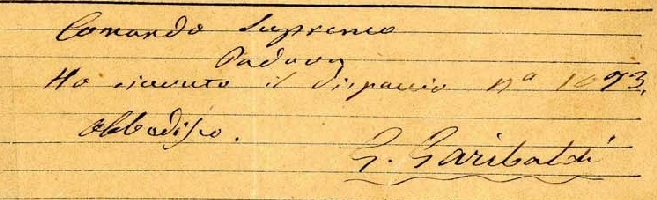 Comando Supremo
Padova
Ho ricevuto il dispaccio Nº 1073.
Obbedisco.
G. Garibaldi